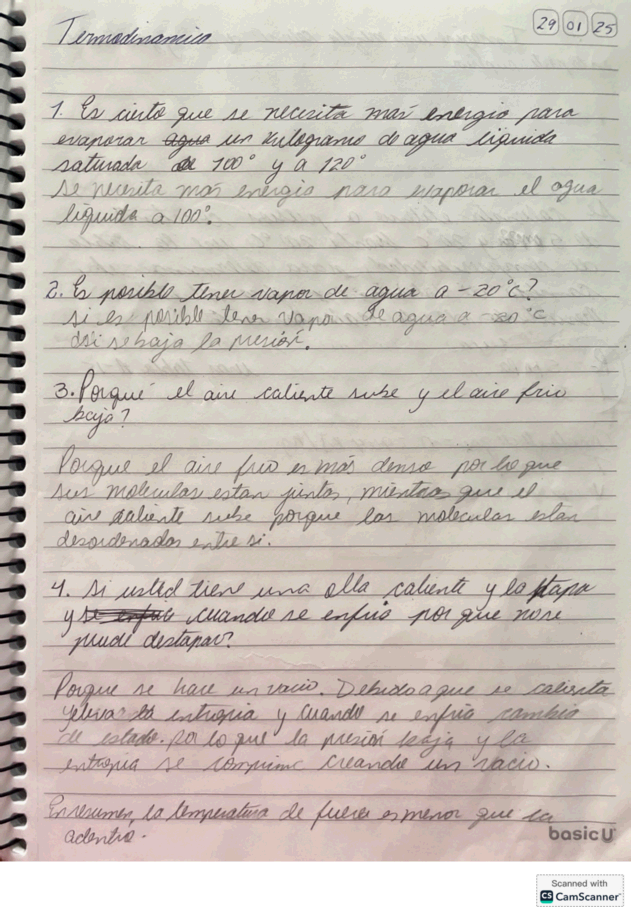 Termodinamica
29 01 25
1. Es cierto que se necesita mas energia para
evaporar agua un kilogramo de agua liquida
saturada a 100° y a 120°
Se necesita mas energia para evaporar el agua
liquida a 100°.
2. Es posible tener vapor de agua a -20°C?
si es posible tener vapor de agua a -20°C
si se baja la presión.
3. Porqué el aire caliente sube y el aire frio
baja?
Porque el aire frio es más denso por lo que
sus moleculas estan juntas, mientras que el
aire caliente sube porque las moleculas estan
desordenadas entre si.
4. Si usted tiene una olla caliente y la tapa
y se enfria cuando se enfria por que no se
puede destapar?
Porque se hace un vacio. Debido a que se calienta
y eleva la entropia y cuando se enfria cambia
de estado. Por lo que la presión baja y la
entropia se comprime creando un vacio.
En resumen, la temperatura de fuera es menor que la
adentro.
basicU
Scanned with
CS CamScanner